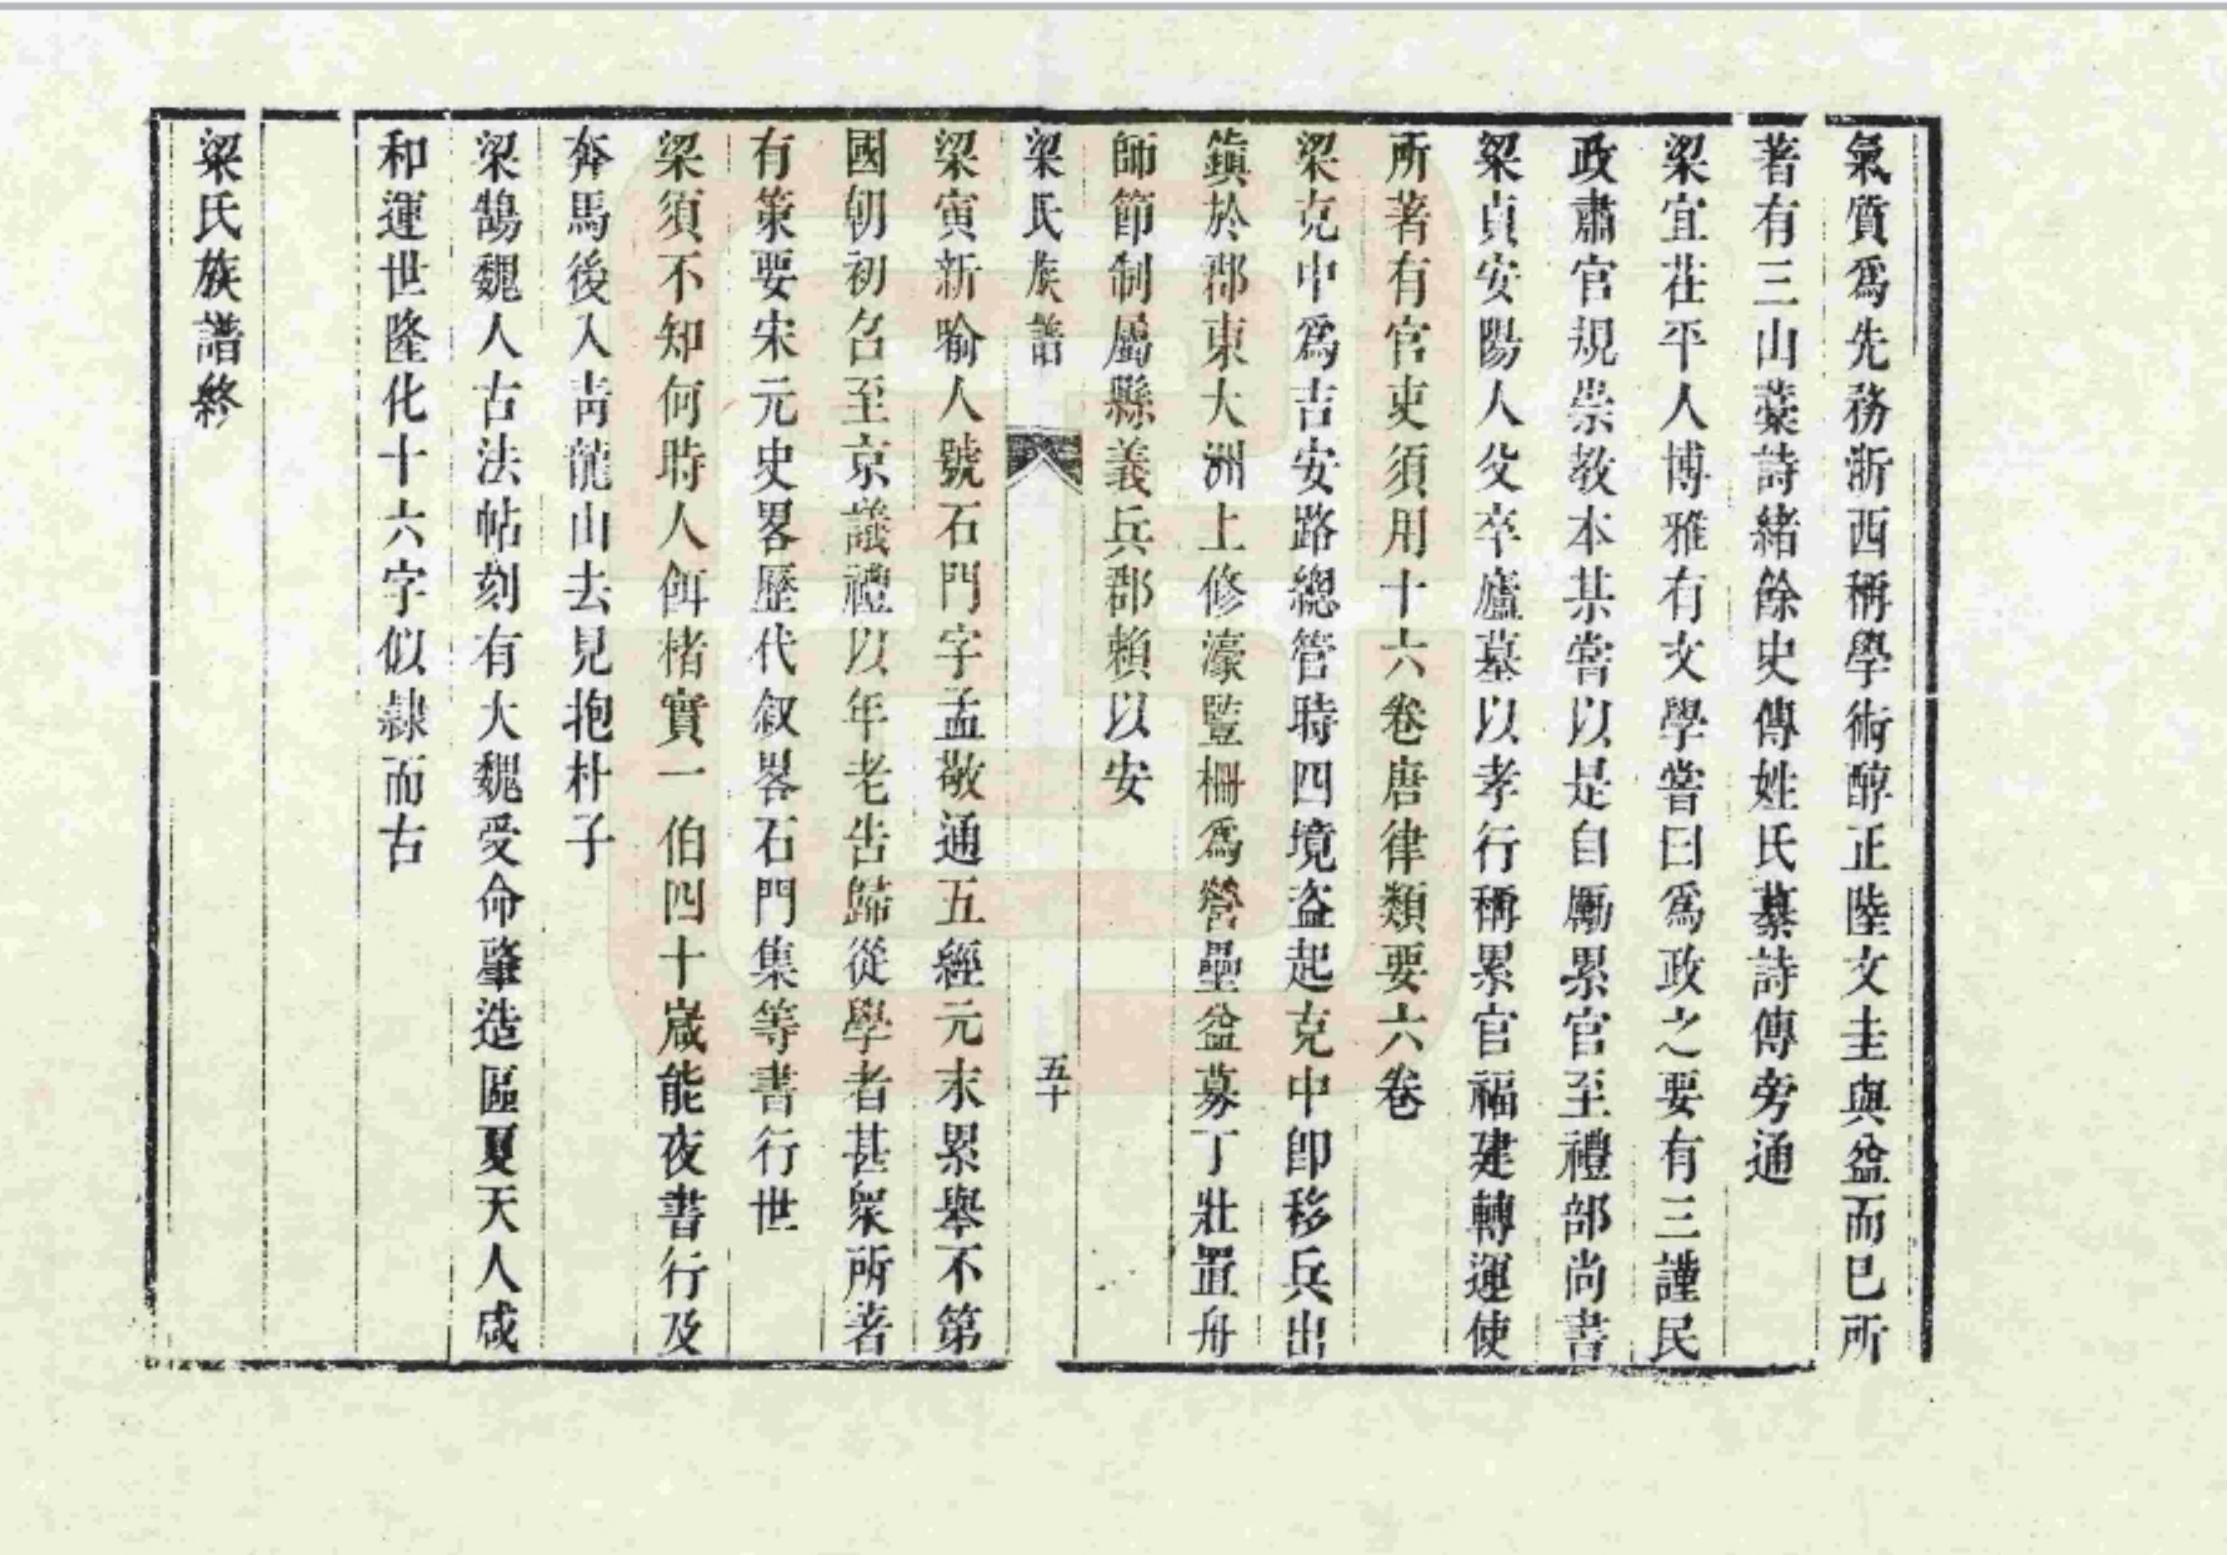 氣質爲先務浙西稱學術醇正陸文圭與益而已所
著有三山藁詩緒餘史傳姓氏纂詩傳旁通
梁宜茌平人博雅有文學嘗曰爲政之要有三謹民
政肅官規崇教本其嘗以是自勵累官至禮部尚書
梁貞安陽人父卒廬墓以孝行稱累官福建轉運使
所著有官吏須用十六卷唐律類要六卷
梁克中爲吉安路總管時四境盗起克中卽移兵出
鎮於郡東大洲上修濠豎柵爲營壘益募丁壯置舟
師節制屬縣義兵郡賴以安
梁氏族譜
五十
梁寅新喻人號石門字孟敬通五經元末累舉不第
國朝初召至京議禮以年老告歸從學者甚衆所著
有策要宋元史畧歷代叙畧石門集等書行世
梁須不知何時人餌楮實一伯四十嵗能夜書行及
奔馬後入靑龍山去見抱朴子
梁鵠魏人古法帖刻有大魏受命肇造區夏天人咸
和運世隆化十六字似隷而古
梁氏族譜終